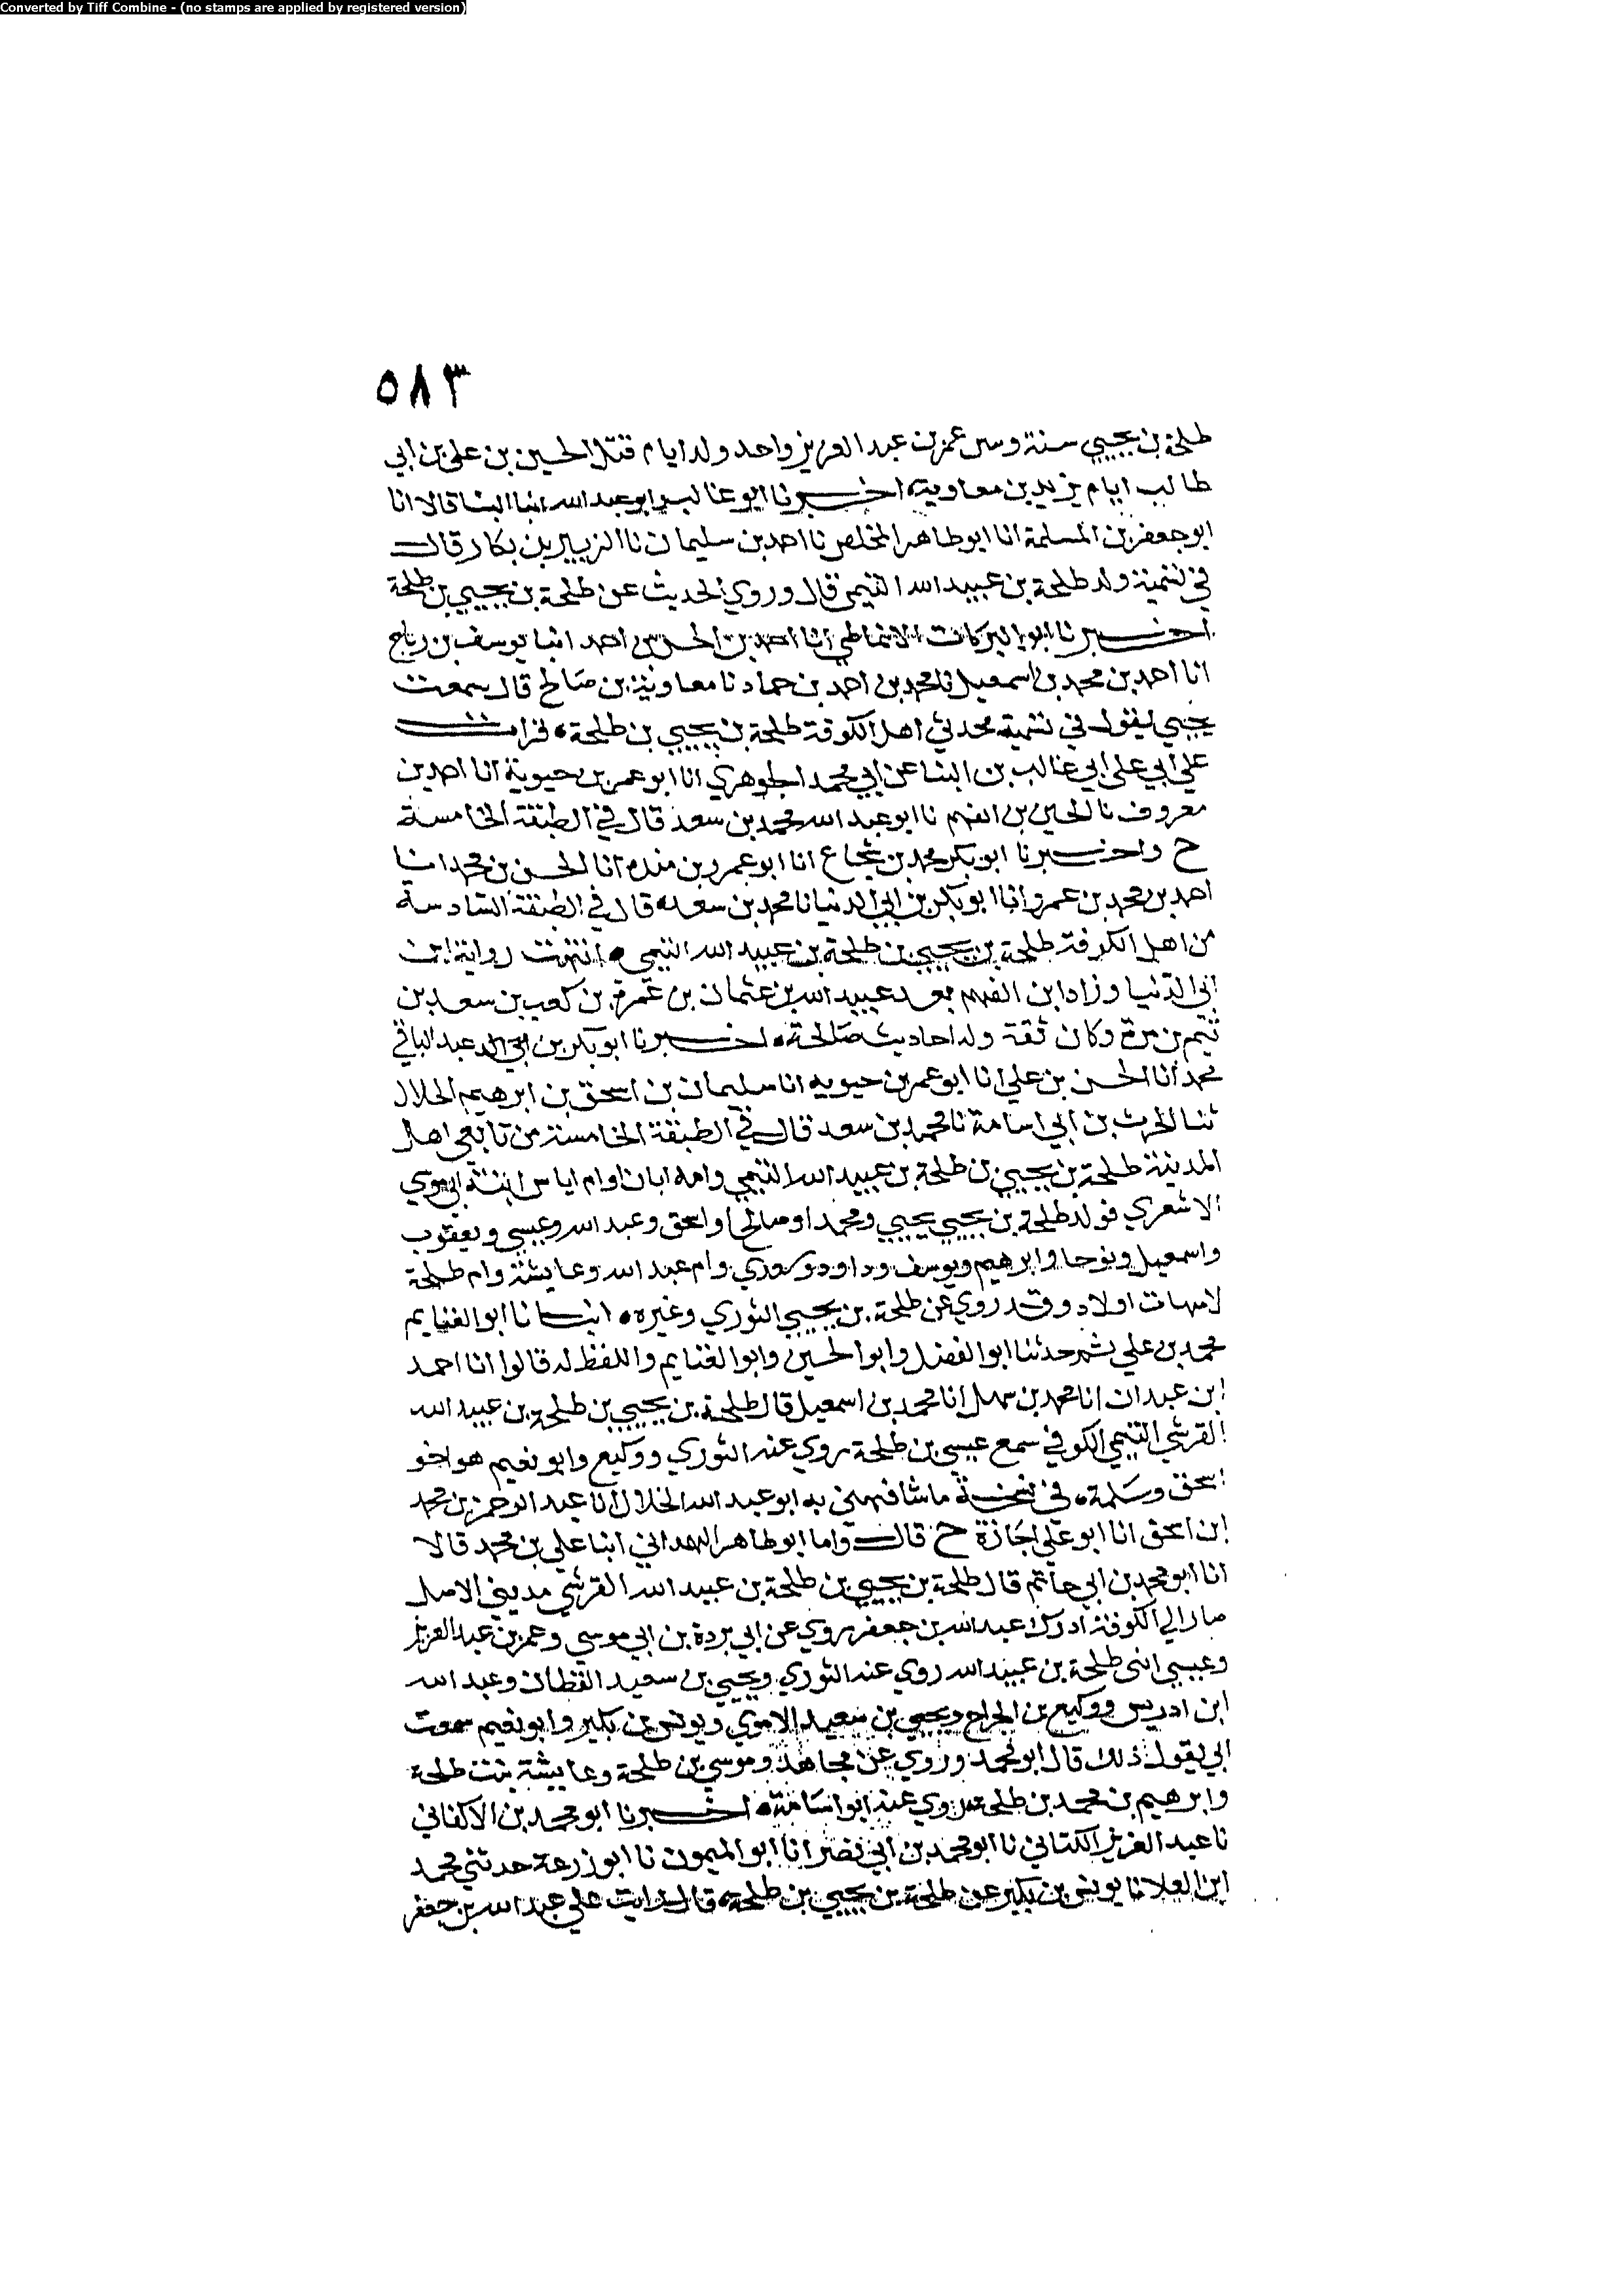 Converted by Tiff Combine - (no stamps are applied by registered version)
٥٨٣
طلحة بن يحيي سنة وسن عمر بن عبد العزيز واحد ولد ايام قتل الحسين بن علي بن ابي
طالب ايام يزيد بن معاوية اخبرنا ابو غالب وابو عبد الله ابنا البنا قالا انا
ابو جعفر بن المسلمة انا ابو طاهر المخلص نا احمد بن سليمان نا الزبير بن بكار قال
في تسمية ولد طلحة بن عبيد الله التيمي قال وروي الحديث عن طلحة بن يحيي بن طلحة
اخبرنا ابو البركات الانماطي انا احمد بن الحسن بن احمد انبا يوسف بن رباح
انا احمد بن محمد بن اسمعيل نا محمد بن احمد بن حماد نا معاوية بن صالح قال سمعت
يحيي يقول في تسمية محدثي اهل الكوفة طلحة بن يحيي بن طلحة قرات
علي ابي غالب بن البنا عن ابي محمد الجوهري انا ابو عمر بن حيوية انا احمد بن
معروف نا الحسين بن الفهم نا ابو عبد الله محمد بن سعد قال في الطبقة الخامسة
ح واخبرنا ابو بكر محمد بن شجاع انا ابو عمرو بن منده انا الحسن بن محمد انا
احمد بن محمد بن عمر وانا ابو بكر بن ابي الدنيا نا محمد بن سعد قال في الطبقة السادسة
من اهل الكوفة طلحة بن يحيي بن طلحة بن عبيد الله التيمي انتهت رواية ابن
ابي الدنيا وزاد ابن الفهم بعد عبيد الله بن عثمان بن عمرو بن كعب بن سعد بن
تيم بن مرة وكان ثقة وله احاديث صالحة اخبرنا ابو بكر بن عبد الباقي
محمد انا الحسن بن علي انا ابو عمر بن حيويه انا سليمان بن اسحق بن ابرهيم الجلال
ثنا الحرث بن ابي اسامة نا محمد بن سعد قال في الطبقة الخامسة من تابعي اهل
المدينة طلحة بن يحيي بن طلحة بن عبيد الله التيمي وامه ام ابان او ام اياس ابنة ابي موسي
الاشعري فولد طلحة بن يحيي يحيي ومحمدا وصالحا واسحق وعبد الله وعيسي ويعقوب
واسمعيل ونوحا وابرهيم ويوسف وداود وسعدي وام عبد الله وعايشة وام طلحة
لامهات اولاد وقد روي عن طلحة بن يحيي الثوري وغيره انبانا ابو الغنايم
محمد بن علي ثم حدثنا ابو الفضل وابو الحسين وابو الغنايم واللفظ له قالوا انا احمد
ابن عبدان انا محمد بن سهل انا محمد بن اسمعيل قال طلحة بن يحيي بن طلحة بن عبيد الله
القرشي التيمي الكوفي سمع عيسي بن طلحة روي عنه الثوري ووكيع وابو نعيم هو اخو
اسحق وسلمة في نسخة ما شافهني به ابو عبد الله الخلال انا عبد الرحمن بن محمد
ابن اسحق انا ابو علي اجازة ح قال واما ابو طاهر الهمداني انبا علي بن محمد قالا
انا ابو محمد بن ابي حاتم قال طلحة بن يحيي بن طلحة بن عبيد الله القرشي مديني الاصل
صار الي الكوفة ادرك عبد الله بن جعفر روي عن ابي بردة بن ابي موسي وعمر بن عبد العزيز
وعيسي ابني طلحة بن عبيد الله روي عنه الثوري ويحيي بن سعيد القطان وعبد الله
ابن ادريس ووكيع بن الجراح ويحيي بن سعيد الاموي ويونس بن بكير وابو نعيم سمعت
ابي يقول ذلك قال ابو محمد وروي عن مجاهد وموسي بن طلحة وعايشة بنت طلحة
وابرهيم بن محمد بن طلحة روي عنه ابو اسامة اخبرنا ابو محمد بن الاكفاني
نا عبد العزيز الكتاني نا ابو محمد بن ابي نصر انا ابو الميمون نا ابو زرعة حدثني محمد
ابن العلا نا يونس بن بكير عن طلحة بن يحيي بن طلحة قال رايت علي عبد الله بن جعفر